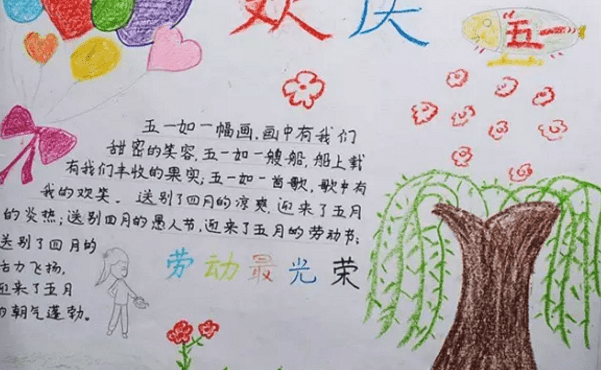 欢庆
五一
五一如一幅画,画中有我们
甜密的笑容,五一如一艘船,船上载
有我们丰收的果实;五一如一首歌,歌中有
我的欢笑。送别了四月的凉爽,迎来了五月
的炎热;送别四月的愚人节,迎来了五月的劳动节;
送别了四月的
活力飞扬,
迎来了五月
的朝气蓬勃。
劳动最光荣